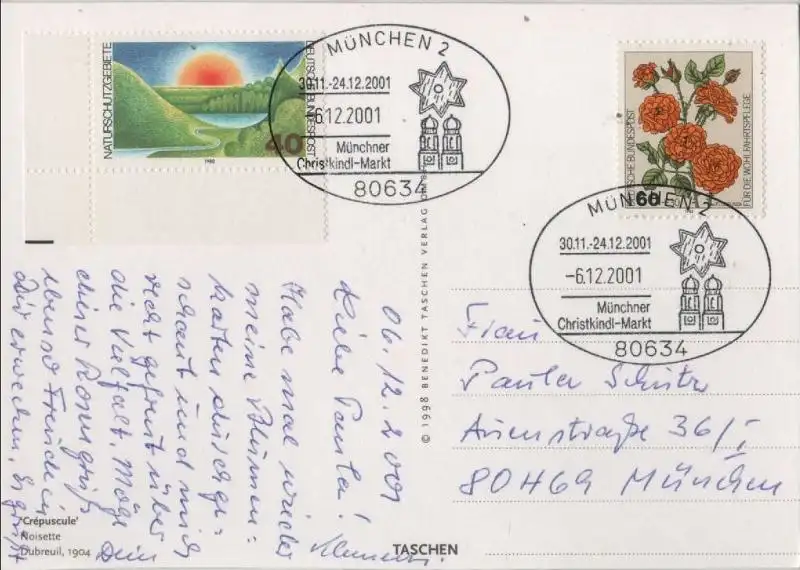 NATURSCHUTZGEBIETE
DEUTSCHE BUNDESPOST
40
1980
MÜNCHEN 2
30.11.-24.12.2001
-6.12.2001
Münchner
Christkindl-Markt
80634
DEUTSCHE BUNDESPOST
FÜR DIE WOHLFAHRTSPFLEGE
60
MÜNCHEN 2
30.11.-24.12.2001
-6.12.2001
Münchner
Christkindl-Markt
80634
06.12.2001
Liebe Paula!
Habe mal wieder
meine Blumen-
karten durchge-
schaut und mich
recht gefreut über
die Vielfalt. Möge
dieser Rosengruß
ebenso Freude in
Dir erwecken. Es grüßt
Dein
© 1998 BENEDIKT TASCHEN VERLAG
Frau
Paula
80469 München
'Crépuscule'
Noisette
Dubreuil, 1904
TASCHEN